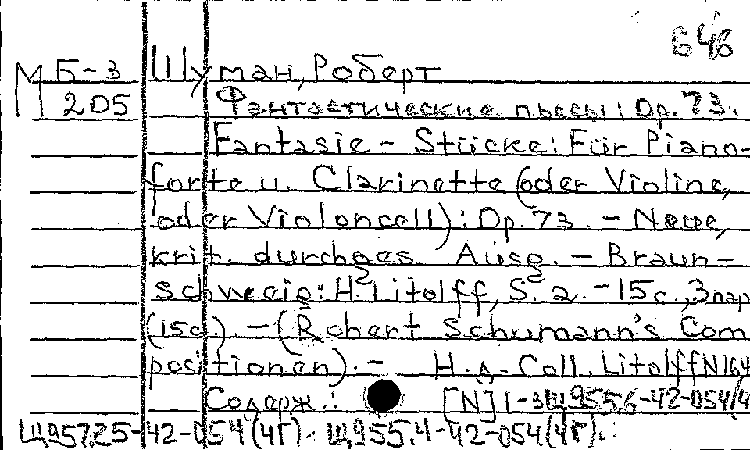 646
М Б-3 Шуман, Роберт
205 Фантастические пьесы: Op. 73.
Fantasie - Stücke: Für Piano-
forte u. Clarinette (oder Violine,
oder Violoncell): Op. 73. - Neue,
krit. durchges. Ausg. - Braun-
schweig: H. Litolff, S. a. - 15 с., 3 пар
(15с) - (Robert Schumann's Com
positionen). - H.д. Coll. Litolff N164
Содерж.: [N] 1-3
Щ957.25-42-054(4Г) Щ955.4-42-054(4Г).